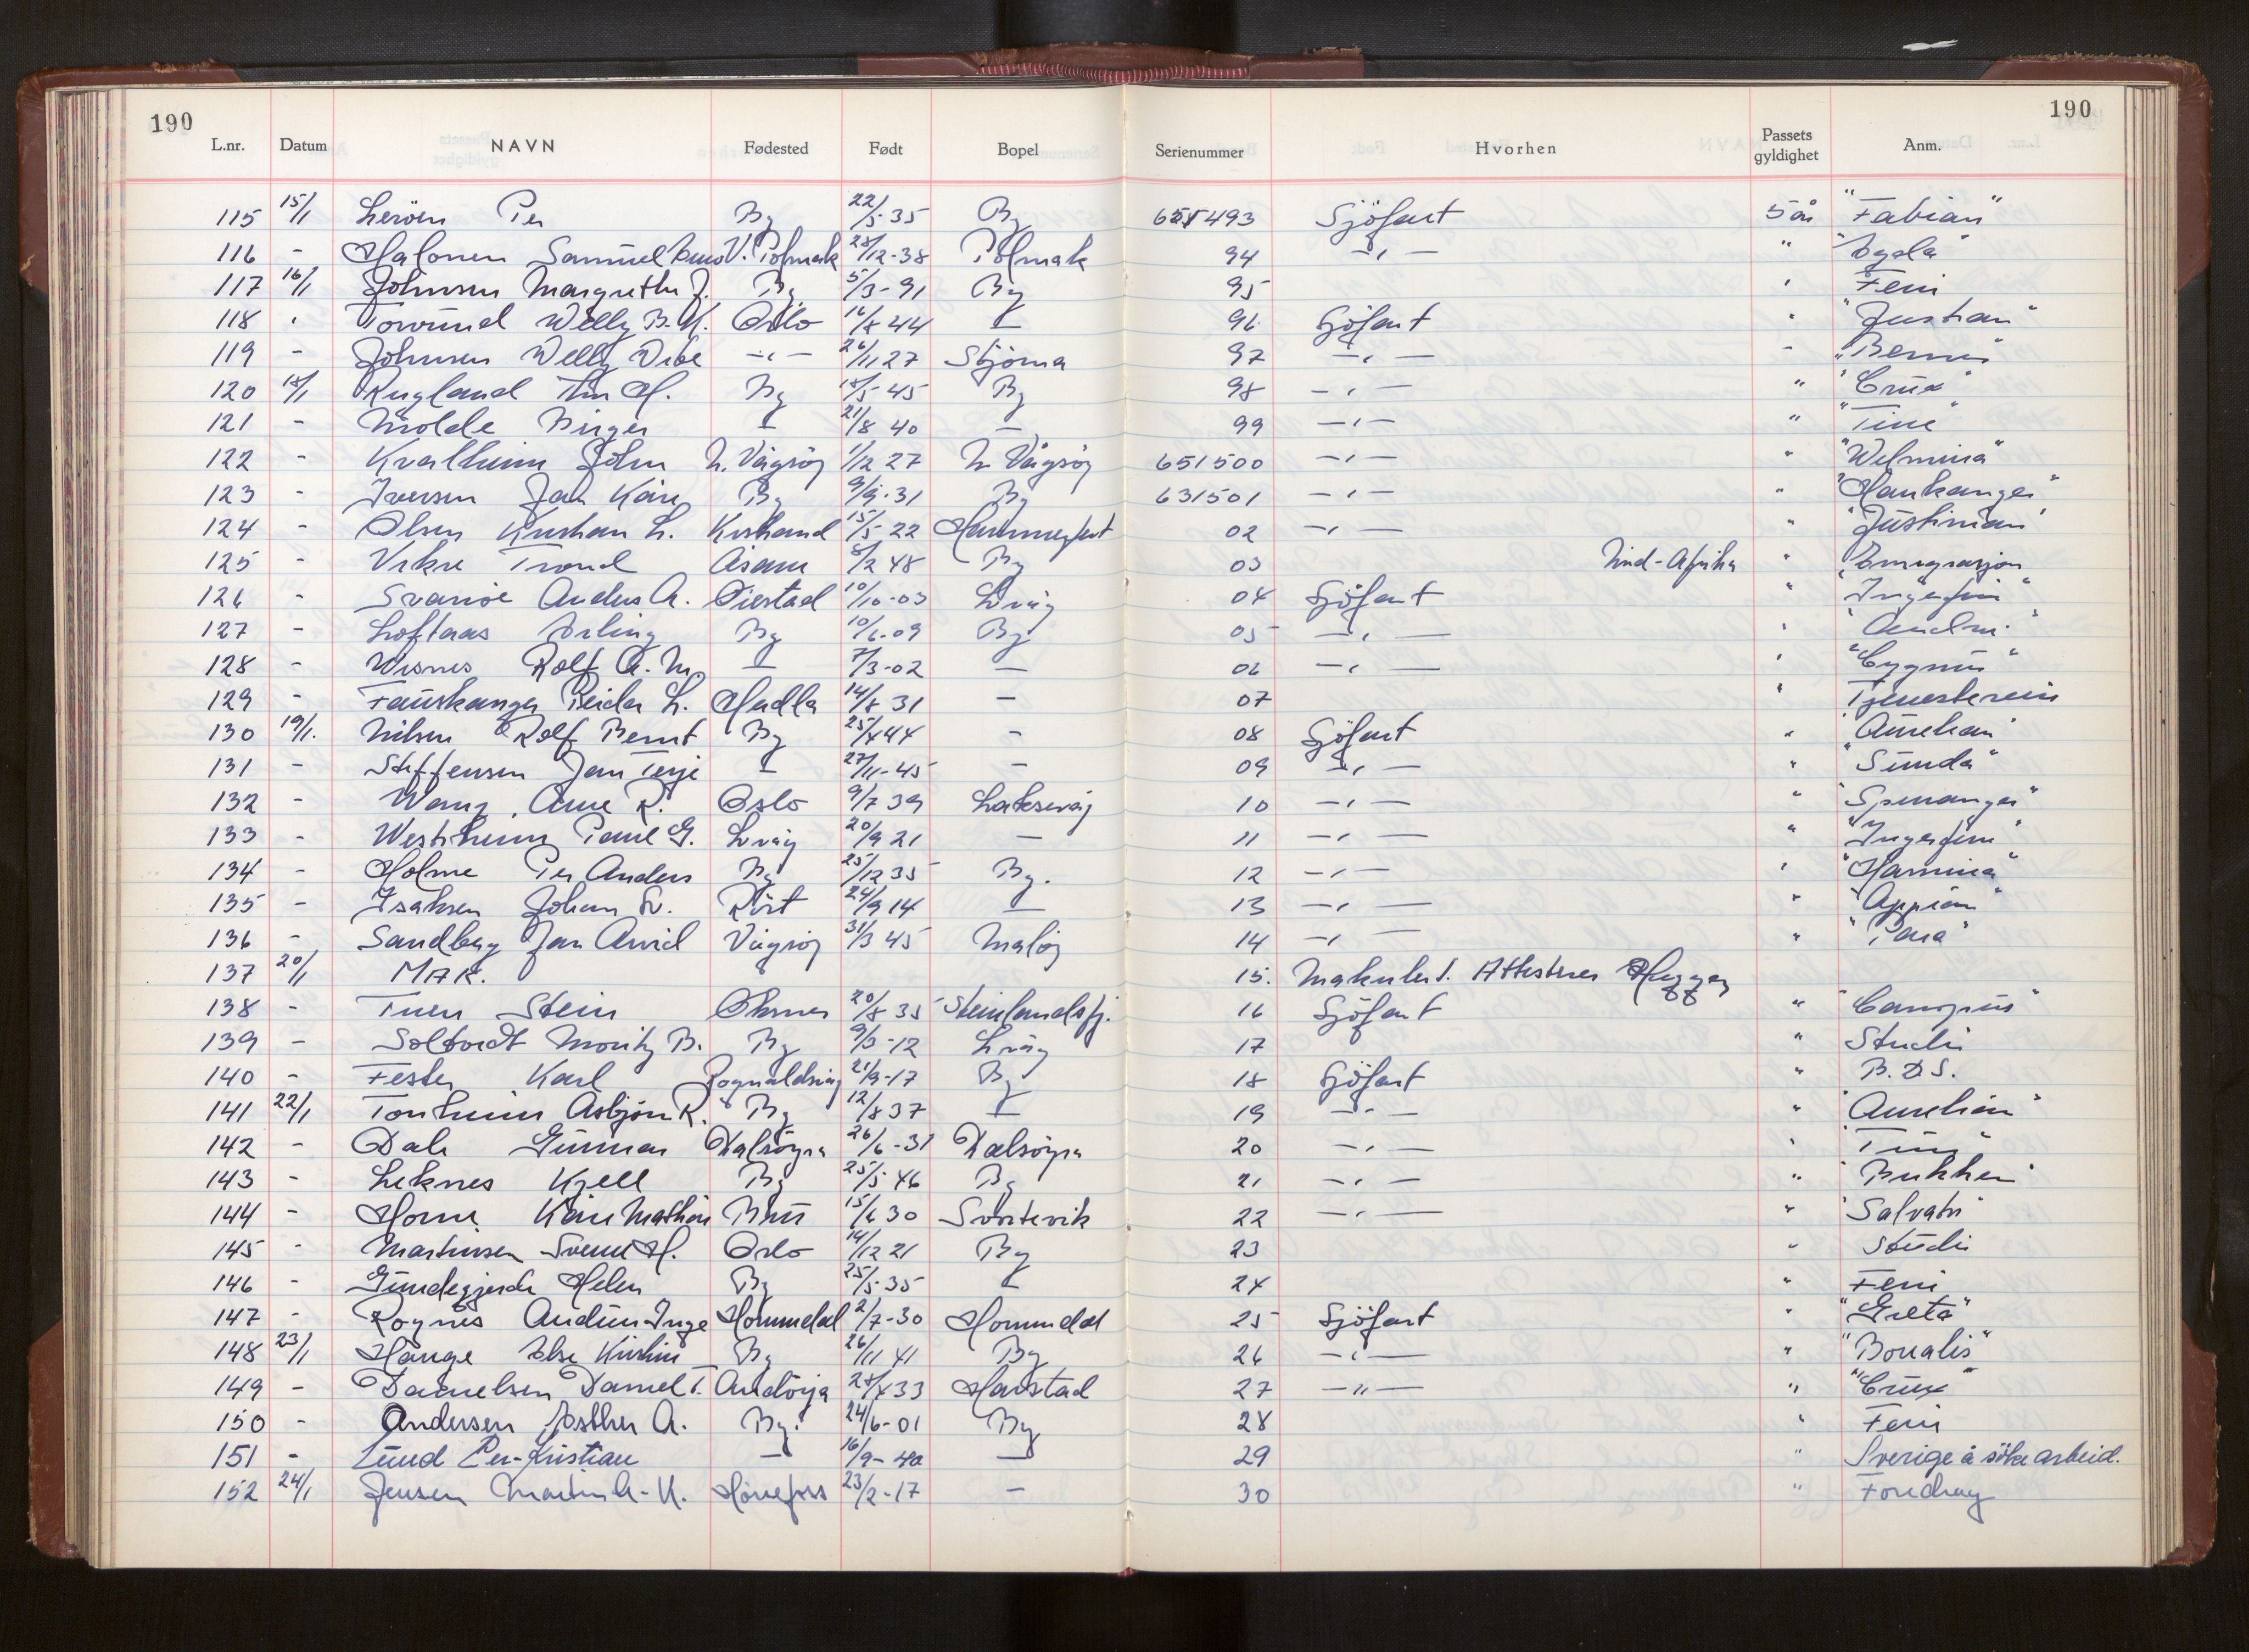 190 190
L.nr. Datum NAVN Fødested Født Bopel Serienummer Hvorhen Passets gyldighet Anm.
115 15/1 Leröen Per Bg 22/5-35 Bg 651493 Sjöfart 5 år "Fabian"
116 - Halonen Samuel V. Polmak 28/12-38 Polmak 94 -"-
117 16/1 Johnsen Margrethe J. Bg 5/3-91 Bg 95 Feri
118 Willy B. K. Oslo 16/8 44 - 96 Sjöfart " "Justian"
119 - Johnsen Willy Vibe -"- 26/11 27 97 -"- -
120 18/1 Rugland Bg 18/5-45 Bg 98 -"- " "Crux"
121 - Molde Birger - 21/8 40 - 99 -"- " "Tine"
122 - Kvalheim John N. Vågsöy 1/12 27 N Vågsöy 651500 -"- " "Wilmina"
123 - Iversen Jan Kåre Bg 9/9-31 Bg 631501 -"- " "Haukanger"
124 - Olsen Kristian L. Kristiansand 15/5 22 02 -"- " "Justinian"
125 - Vikse Trond Åsane 8/2 48 Bg 03 Emigrasjon
126 - Svanöe Anders A. 10/10-03 Lvåg 04 Sjöfart " "Ingerfem"
127 - Loftaas Erling Bg 10/6-09 Bg 05 -"-
128 - Wisnes Rolf A. M. - 7/3-02 - 06 -"- "Cygnus"
129 - Fauskanger Reidar L. Hadla 14/8 31 - 07 " Tjenestereis
130 19/1. Nilsen Rolf Bernt Bg 25/4 44 - 08 Sjöfart " "Aurelian"
131 - Steffensen Jan Terje - 27/11-45 - 09 -"- " "Sunda"
132 - Wang Arne R. Oslo 9/7 39 Laksevåg 10 -"- " "Spinanger"
133 - Westrheim Paul G. Lvåg 20/9 21 - 11 -"- " "Ingerfem"
134 - Holme Per Anders Bg 25/12 35 Bg. 12 -"- "Hamina"
135 - Isaksen Johan Röst 24/9 14 - 13 -"- " "Appian"
136 - Sandberg Jan Arvid Vågsöy 31/3 45 Målöy 14 -"- " "Para"
137 20/1 MAK. 15. Makulert. Attesteres
138 - Tuen Stein Öksnes 20/8 35 Steinlandsfj. 16 Sjöfart " "Canopus"
139 - Soltvedt Moritz B. Bg 9/3-12 Lvåg 17 " Studie
140 - Fester Karl Rognaldsvåg 21/9-17 Bg 18 Sjöfart " B.D.S.
141 22/1 Tonheim Asbjörn R. Bg 12/8 37 - 19 -"- " "Aurelian"
142 - Dale Gunnar Dalsöyra 26/6-31 Dalsöyra 20 -"-
143 - Leknes Kjell Bg 25/5 46 Bg 21 -"- "
144 - Horne Kåre Mathias Bru 15/6 30 Svortevik 22 -"- " "Salvator"
145 - Martinsen Svend H. Oslo 14/12 21 Bg 23 " Studie
146 - Helen Bg 25/5-35 - 24 " Feri
147 - Roynes Audun Inge Hommedal 2/7-30 Hommedal 25 Sjöfart " "Greta"
148 23/1 Hauge Else Kirstine Bg 26/11 41 Bg 26 -"- " "Borealis"
149 - Danielsen Daniel T. Andörja 28/4 33 Harstad 27 -"- " "Crux"
150 - Andersen Esther A. Bg. 24/6-01 Bg 28 " Feri
151 - Lund Per-Kristian - 16/9-40 - 29 " Sverige å söke arbeid.
152 24/1 Jensen Martin A-K. Hönefoss 23/2-17 - 30 " Foredrag